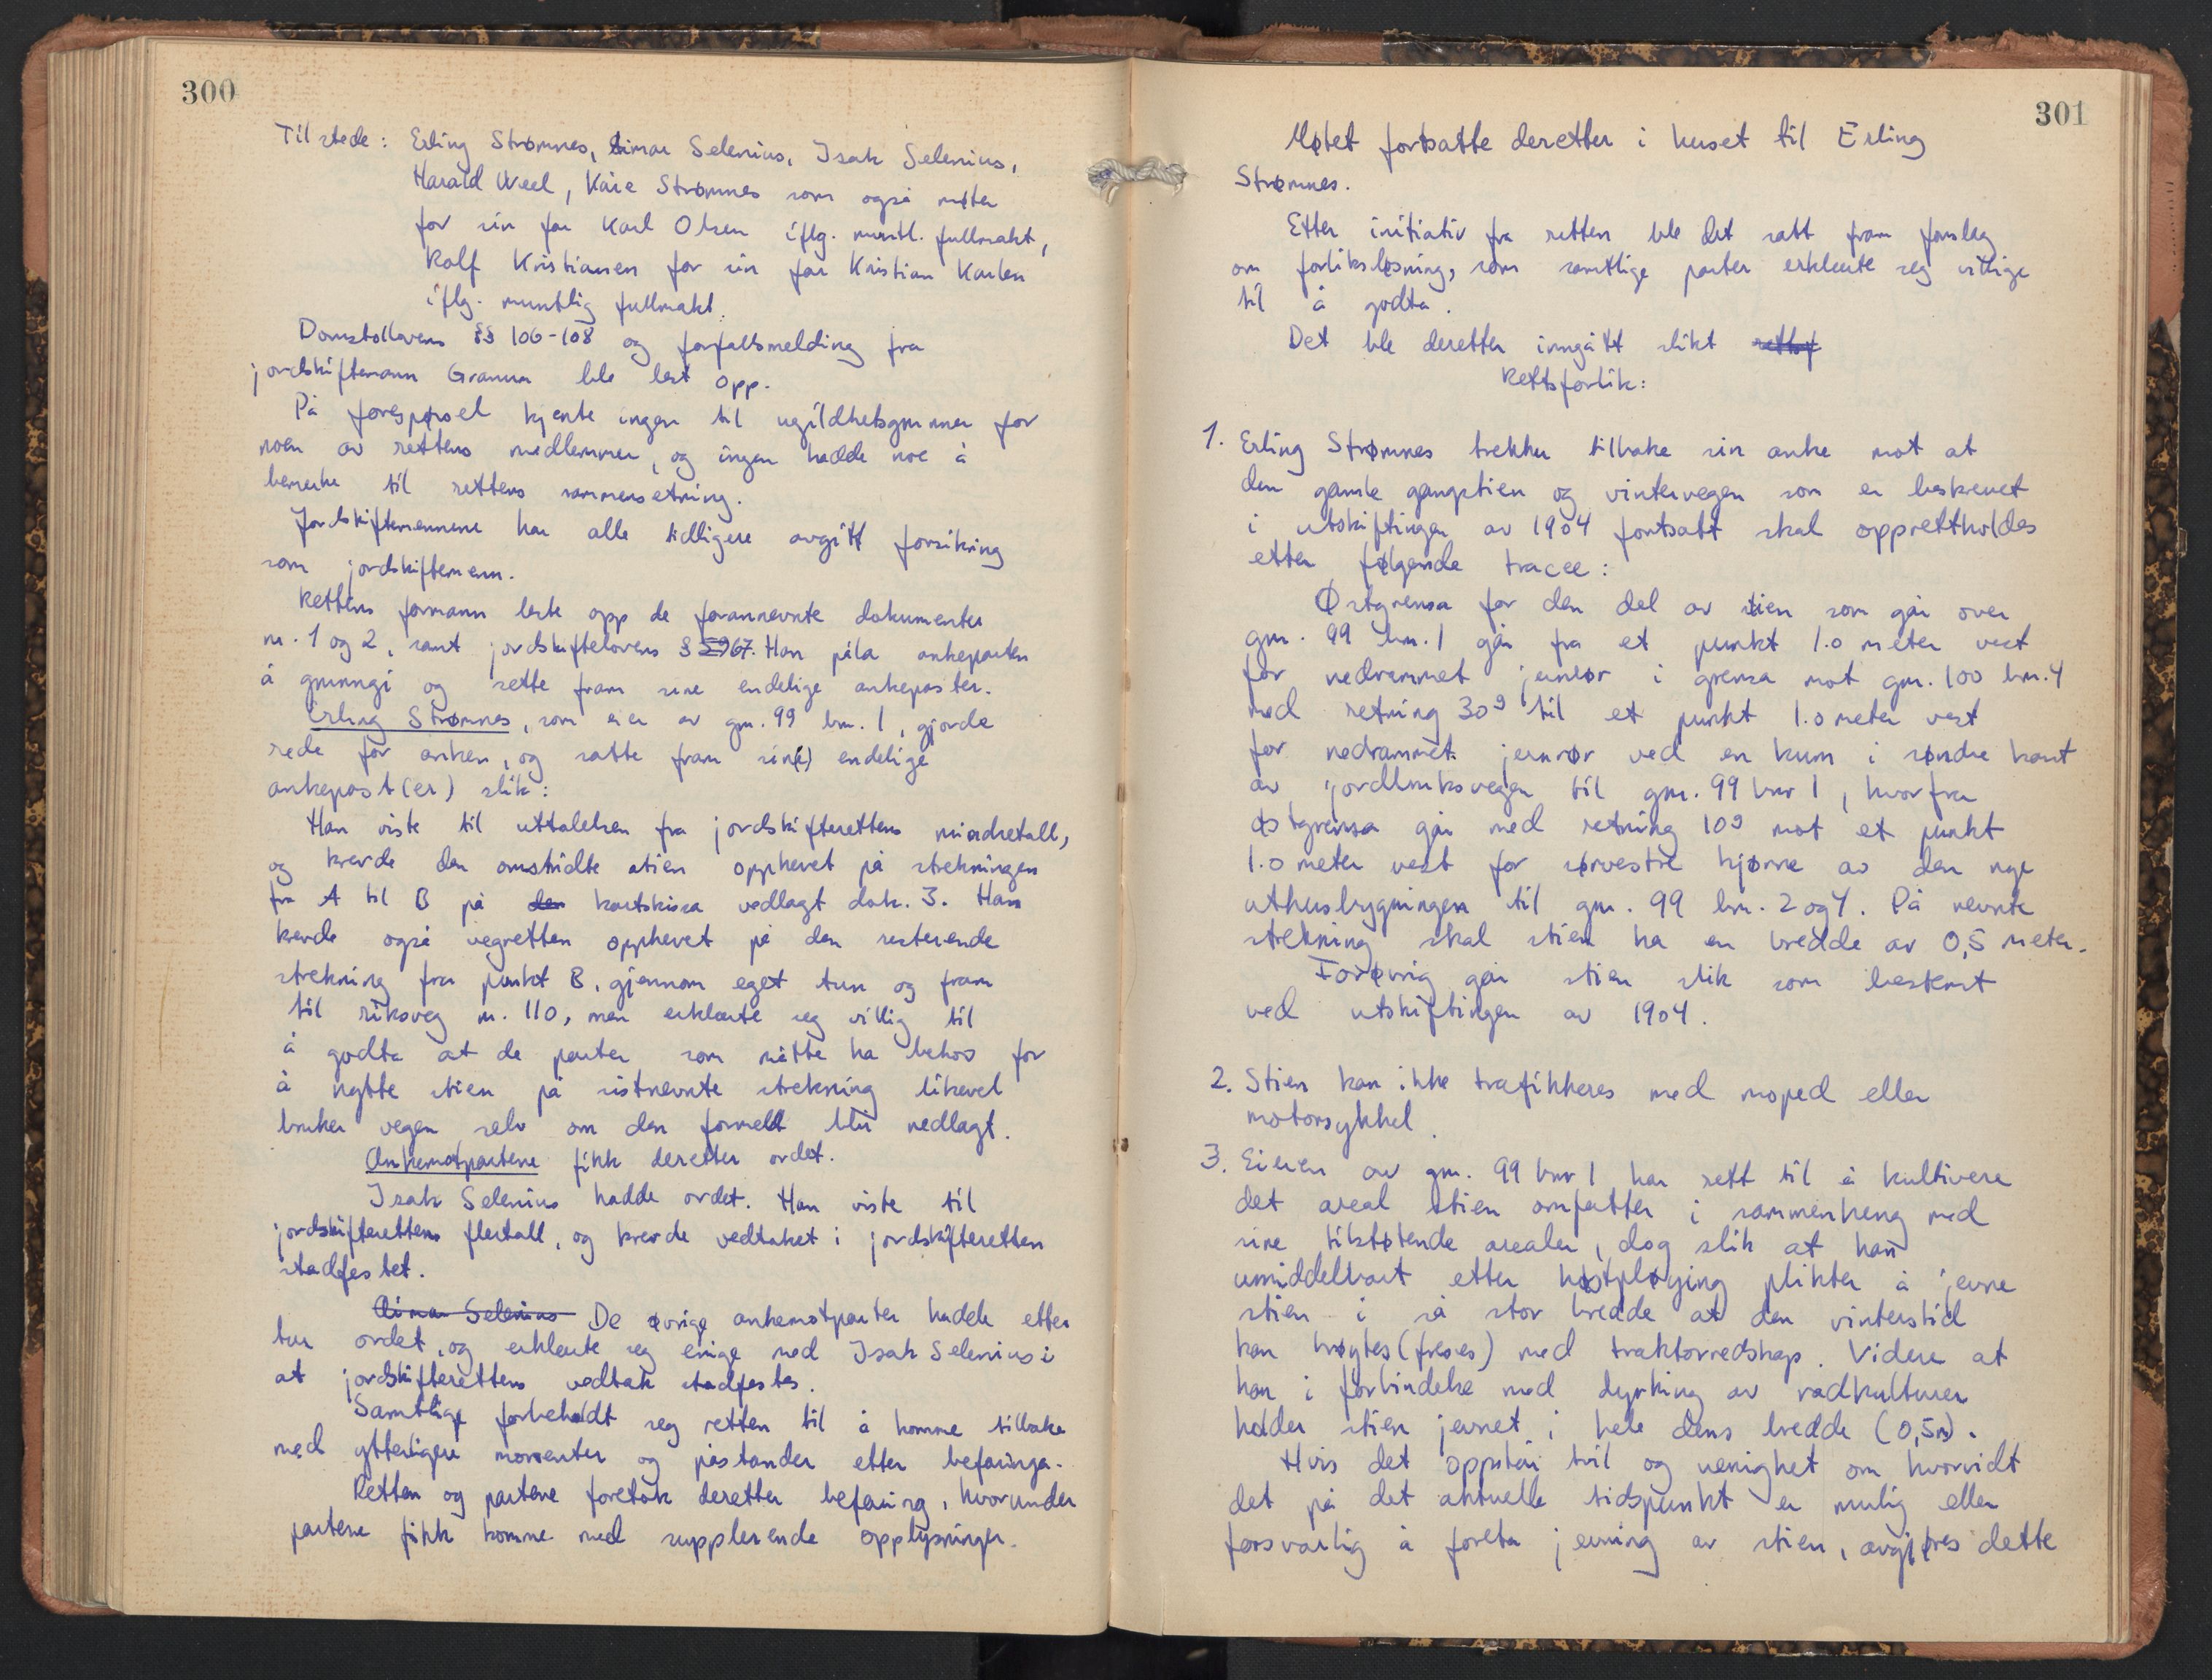 300
Til stede: Erling Strømnes, Einar Selenius, Isak Selenius,
Harald Weel, Kåre Strømnes som også møter
for sin far Karl Olsen iflg. muntl. fullmakt,
Rolf Kristiansen for sin far Kristian Karlen
iflg. muntlig fullmakt.
Domstollovens §§ 106-108 og forfallsmelding fra
jordskiftemann Granum ble lest opp.
På forespørsel kjente ingen til ugildhetsgrunner for
noen av rettens medlemmer, og ingen hadde noe å
bemerke til rettens sammensetning.
Jordskiftemennene har alle tidligere avgitt forsikring
som jordskiftemenn.
Rettens formann leste opp de forannevnte dokumenter
nr. 1 og 2, samt jordskiftelovens § 67. Han påla ankeparten
å grunngi og sette fram sine endelige ankeposter.
Erling Strømnes, som eier av gnr. 99 bnr. 1, gjorde
rede for anken, og satte fram sin(e) endelige
ankepost(er) slik:
Han viste til uttalelsen fra jordskifterettens mindretall,
og krevde den omstridte stien opphevet på strekningen
fra A til B på den kartskissa vedlagt dok. 3. Han
krevde også vegretten opphevet på den resterende
strekning fra punkt B, gjennom eget tun og fram
til riksveg nr. 110, men erklærte seg villig til
å godta at de parter som måtte ha behov for
å nytte stien på sistnevnte strekning likevel
bruker vegen selv om den formelt blir nedlagt.
Ankemotpartene fikk deretter ordet.
Isak Selenius hadde ordet. Han viste til
jordskifterettens flertall, og krevde vedtaket i jordskifteretten
stadfestet.
Einar Selenius De øvrige ankemotparter hadde etter
tur ordet, og erklærte seg enige med Isak Selenius i
at jordskifterettens vedtak stadfestes.
Samtlige forbeholdt seg retten til å komme tilbake
med ytterligere momenter og påstander etter befaringa.
Retten og partene foretok deretter befaring, hvorunder
partene fikk komme med supplerende opplysninger.
301
Møtet fortsatte deretter i huset til Erling
Strømnes.
Etter initiativ fra retten ble det satt fram forslag
om forliksløsning, som samtlige parter erklærte seg villige
til å godta.
Det ble deretter inngått slikt rettsf
Rettsforlik:
1. Erling Strømnes trekker tilbake sin anke mot at
den gamle gangstien og vintervegen som er beskrevet
i utskiftingen av 1904 fortsatt skal opprettholdes
etter følgende tracee:
Østgrensa for den del av stien som går over
gnr. 99 bnr. 1 går fra et punkt 1.0 meter vest
for nedrammet jernrør i grensa mot gnr. 100 bnr. 4
med retning 30g til et punkt 1.0 meter vest
for nedrammet jernrør ved en kum i søndre kant
av jordbruksvegen til gnr. 99 bnr 1, hvorfra
østgrensa går med retning 10g mot et punkt
1.0 meter vest for sørvestre hjørne av den nye
uthusbygningen til gnr. 99 bnr. 2 og 4. På nevnte
strekning skal stien ha en bredde av 0,5 meter.
Forøvrig går stien slik som beskrevet
ved utskiftingen av 1904.
2. Stien kan ikke trafikkeres med moped eller
motorsykkel.
3. Eieren av gnr. 99 bnr 1 har rett til å kultivere
det areal stien omfatter i sammenheng med
sine tilstøtende arealer, dog slik at han
umiddelbart etter høstpløying plikter å jevne
stien i så stor bredde at den vinterstid
kan brøytes (freses) med traktorredskap. Videre at
han i forbindelse med dyrking av radkulturer
holder stien jevnet i hele dens bredde (0,5m).
Hvis det oppstår tvil og uenighet om hvorvidt
det på det aktuelle tidspunkt er mulig eller
forsvarlig å foreta jevning av stien, avgjøres dette